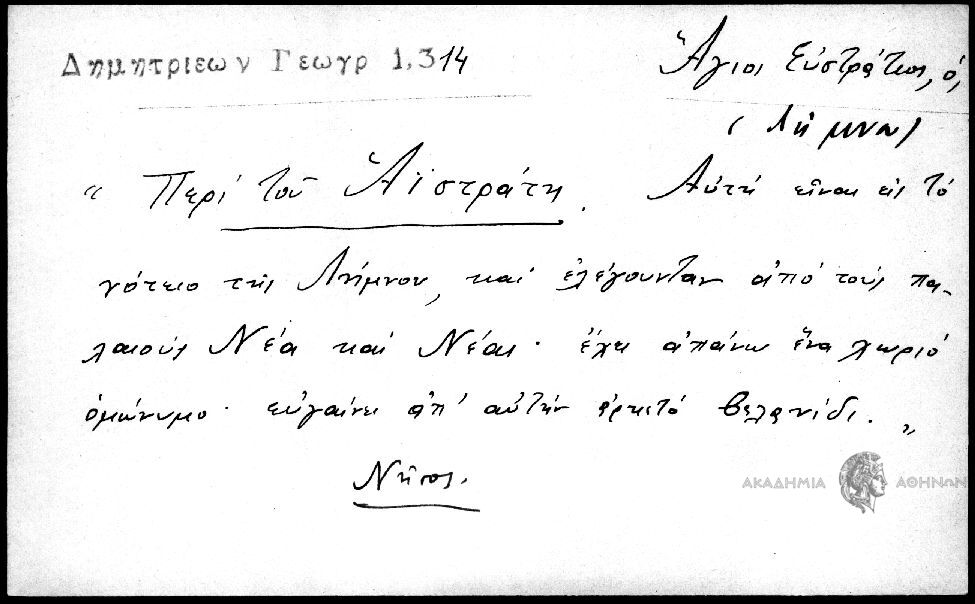 Δημητριεων Γεωγρ 1,314
Ἅγιος Εὐστράτιος, ὁ,
(Λῆμνος)
“ Περὶ τοῦ Ἁϊστράτη. Αὐτὴ εἶναι εἰς τὸ
νότειο τῆς Λήμνου, καὶ ἐλέγουνταν ἀπὸ τοὺς πα-
λαιοὺς Νέα καὶ Νέαι· ἔχει ἀπάνω ἕνα χωριό
ὁμώνυμο· εὐγαίνει ἀπ' αὐτὴν ἀρκετό βελανίδι. „
Νῆσος.
ΑΚΑΔΗΜΙΑ ΑΘΗΝΩΝ